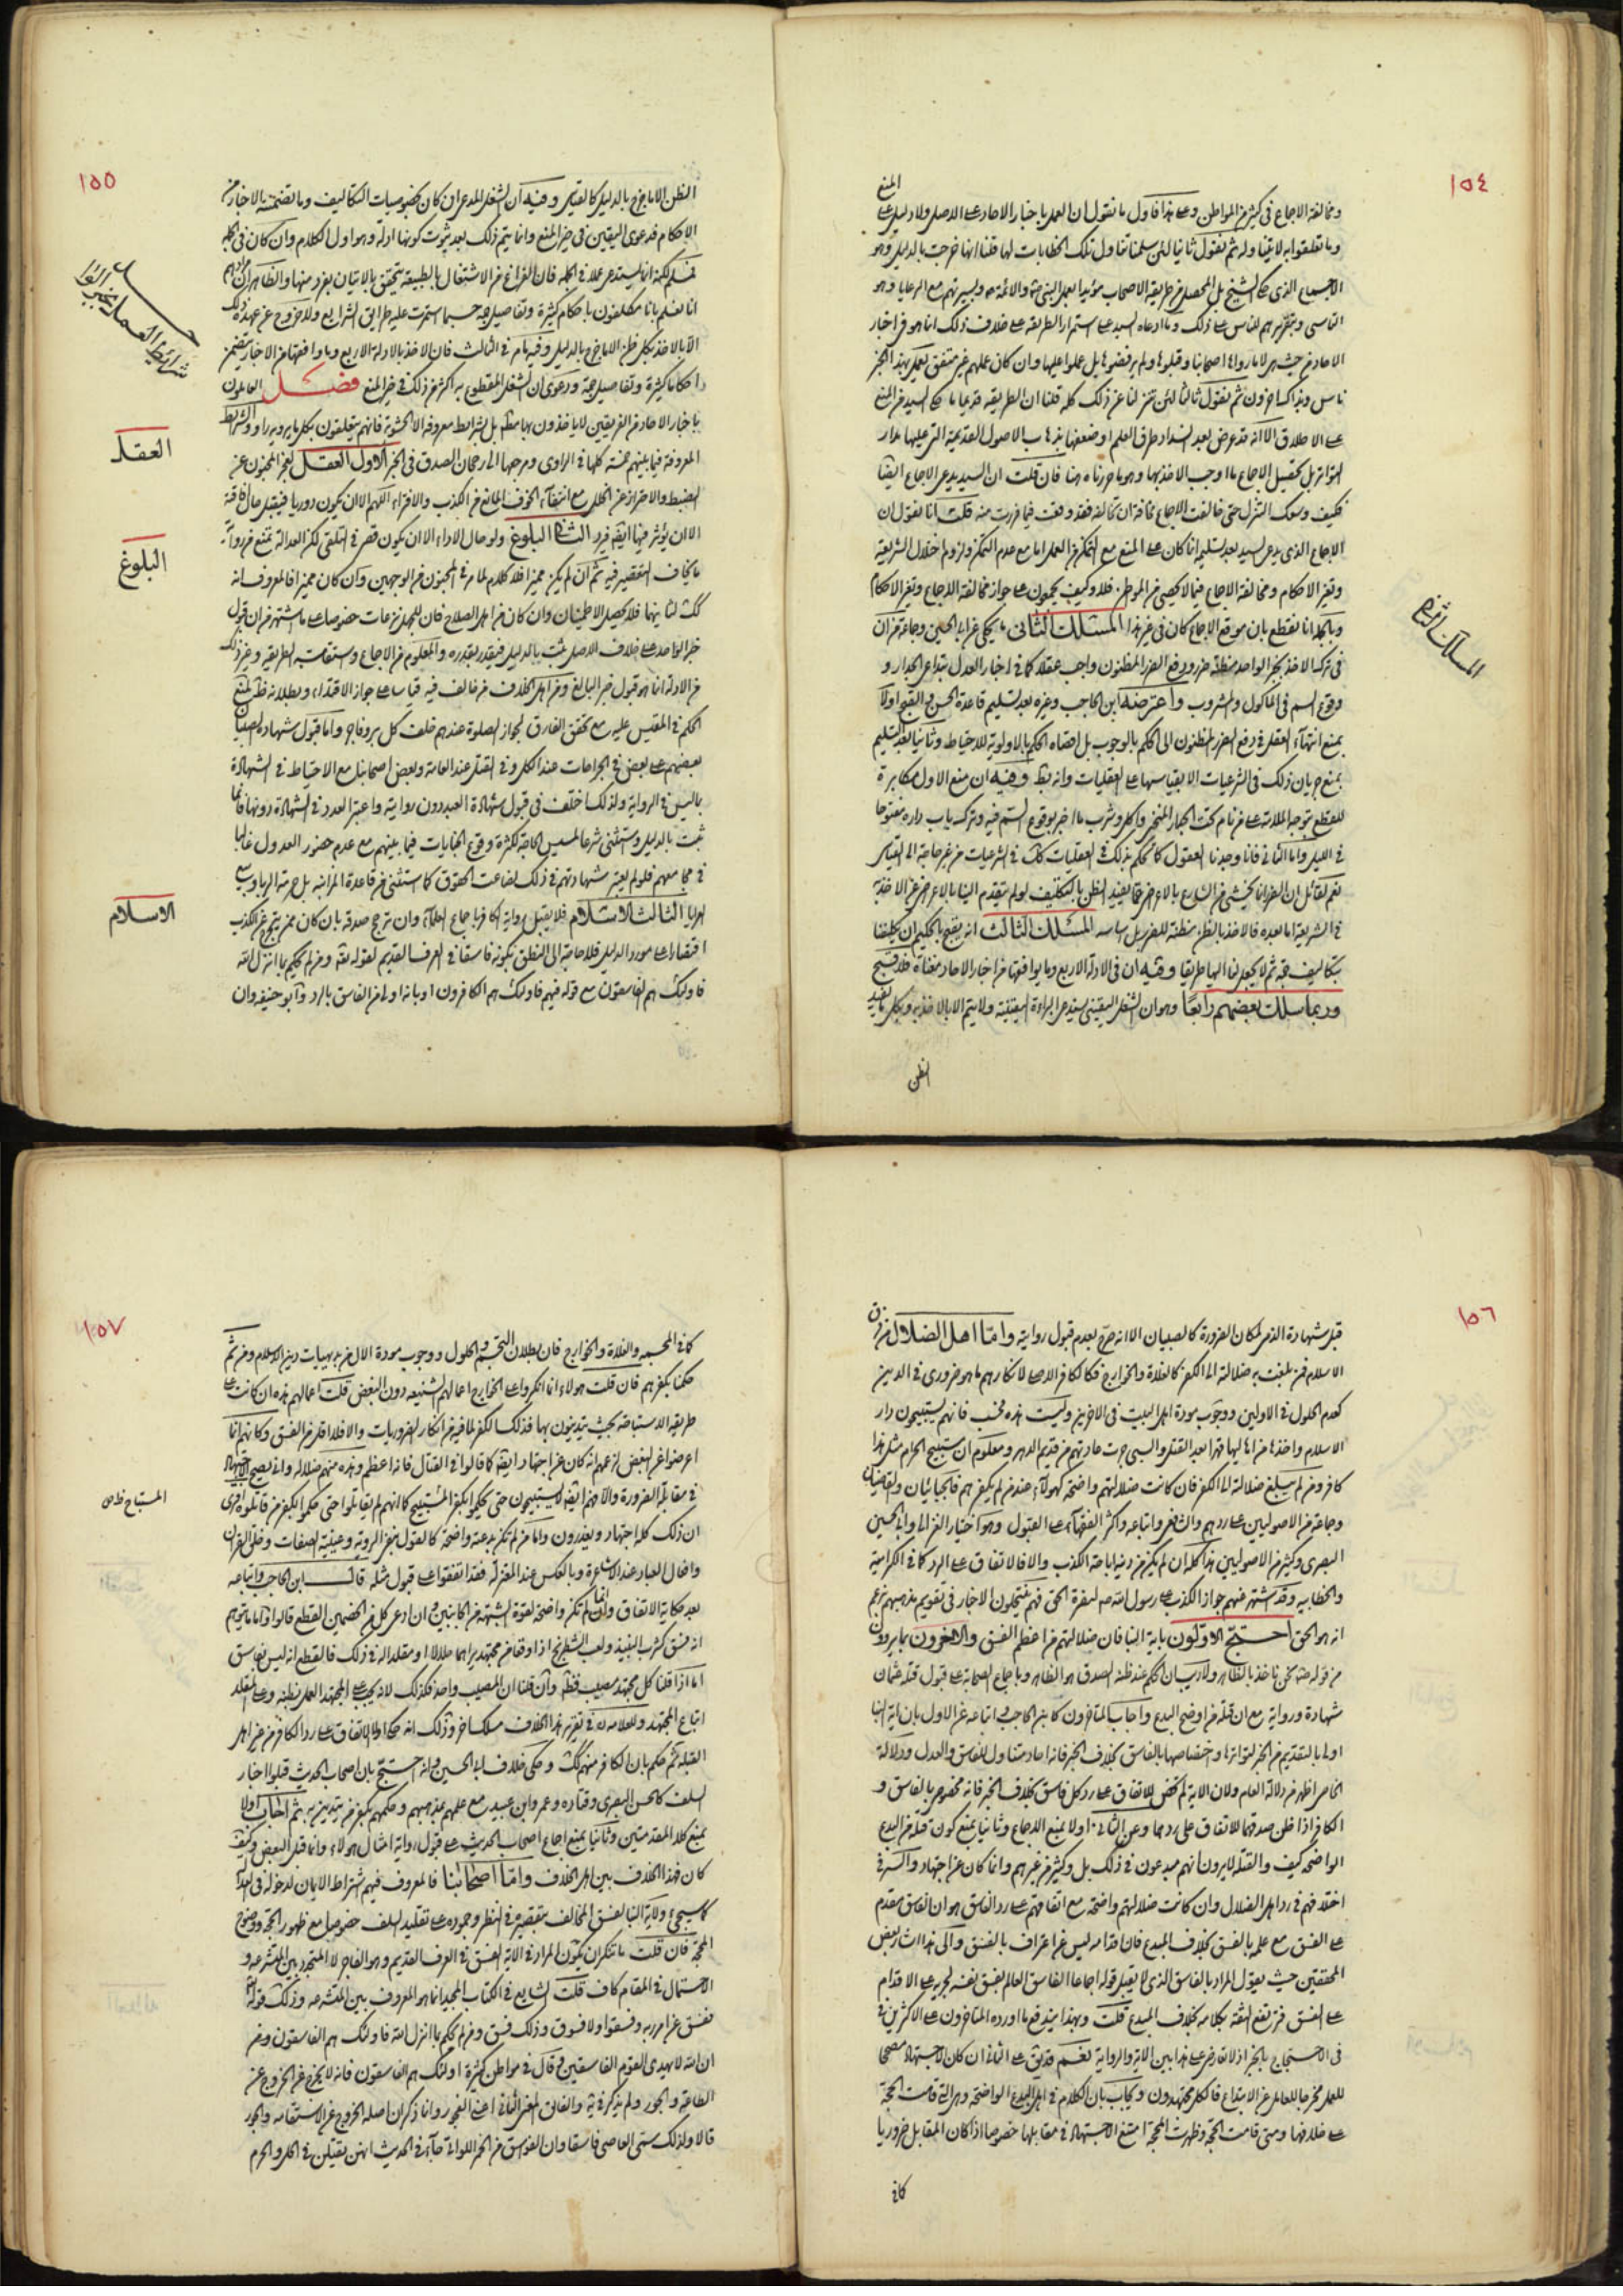 ١٥٤
المنع
ومخالفة الاجماع في كثير من المواطن وعلى هذا فاول ما نقول ان العمل باخبار الآحاد على الاصل ولا دليل على
وما تعلقوا به لا يتناوله ثم نقول ثانيا لئن سلمنا تناول تلك الخطابات لها قلنا انها خرجت بالدليل وهو
الاجماع الذي حكاه الشيخ بل المحصل من طريقة الاصحاب مؤيدا بعمل النبي والائمة وسيرتهم مع الرعايا وهو
التاسي وتقريرهم للناس على ذلك وما ادعاه السيد على استمرار الطريقة على خلاف ذلك انما هو في اخبار
الآحاد من حيث هي لا ما رواها اصحابنا وقبلوها ولم يرفضوها بل عملوا عليها وان كان عملهم غير متفق يعمل بهذا الخبر
ناس وبذاك اخرون ثم نقول ثالثا لئن تنزلنا عن ذلك كله قلنا ان الطريقة قديما ما حكاه السيد من المنع
على الاطلاق الا انه قد عرض بعد انسداد طرق العلم او ضعفها بذهاب الاصول القديمة التي عليها مدار
التواتر بل تحصيل الاجماع ما اوجب الاخذ بها وهو ما حررناه هنا فان قلت ان السيد يدعي الاجماع ايضا
فكيف وسعك التنزل حتى خالفت الاجماع مخافة ان تخالفه فقد وقعت فيما فررت منه قلت انا نقول ان
الاجماع الذي يدعي السيد بعد تسليمه انما كان على المنع مع التمكن من العمل اما مع عدم التمكن ولزوم اختلال الشريعة
وتغير الاحكام ومخالفة الاجماع فيما لا يحصى من المواطن فلا وكيف يجمعون على جواز مخالفة الاجماع وتغير الاحكام
وبالجملة انا نقطع بان موقع الاجماع كان في غير هذا المسلك الثاني ما يحكى عن ابي الحسين وجماعة من ان
في تركه الاخذ بخبر الواحد مظنة ضرر ودفع الضرر المظنون واجب عقلا كما في اخبار العدل بتداعي الجدار و
وقوع السم في الماكول والمشروب واعترضه ابن الحاجب وغيره بعد تسليم قاعدة الحسن والقبح اولا
بمنع انتهاء العقل في دفع الضرر المظنون الى الحكم بالوجوب بل اقصاه الحكم بالاولوية للاحتياط وثانيا بعد التسليم
بمنع جريان ذلك في الشرعيات الا بقياسها على العقليات وانه بط وفيه ان منع الاول مكابرة
للقطع بتوجه الملامة على من نام تحت الجدار المنحني واكل وشرب ما اخبر بوقوع السم فيه وترك باب داره مفتوحا
في الليل واما الثاني فانا وجدنا العقول كما تحكم بذلك في العقليات كك في الشرعيات من غير حاجة الى القياس
المسلك الثالث انه يقبح بالحكيم ان يكلفنا
بتكاليف جمة ثم لا يجعل لنا اليها طريقا وفيه ان في الادلة الاربع وما يوافقها من اخبار الآحاد مغناة فلا قبح
وربما سلك بعضهم رابعا وهو ان الشغل اليقيني يستدعي البراءة اليقينية ولا يتم الا بالاخذ به وبكل ما يفيد
الظن
المسلك الثاني
١٥٥
الظن الا ما خرج بالدليل كالقياس وفيه ان الشغل المدعى ان كان بخصوصيات التكاليف وما تضمنته الاخبار من
الاحكام فدعوى اليقين في حيز المنع وانما يتم ذلك بعد ثبوت كونها ادلة وهو اول الكلام وان كان في الجملة
فمسلم لكنه انما يستدعي عملا في الجملة فان الفراغ من الاشتغال بالطبيعة يتحقق بالاتيان بفرد منها والظاهر ان مرادهم
انا نعلم بانا مكلفون باحكام كثيرة وتفاصيل جمة حسبما استمرت عليه طرايق الشرايع ولا خروج عن عهدة ذلك
الا بالاخذ بكل ظن الا ما خرج بالدليل وفيه ما مر في الثالث فان الاخذ بالادلة الاربع وما وافقها من الاخبار يتضمن
احكاما كثيرة وتفاصيل جمة ودعوى ان الشغل المقطوع به اكثر من ذلك في حيز المنع فصل العاملون
باخبار الآحاد من الفريقين لا ياخذون بها مطلقا بل بشرايط معروفة الا الحشوية فانهم يتعلقون بكل ما يرويه راو والشرايط
المعروفة فيما بينهم خمسة كلها في الراوي ومرجعها الى رجحان الصدق في الخبر الاول العقل لعجز المجنون عن
الضبط والاحتراز عن الخلل مع انتفاء الخوف المانع من الكذب والافتراء اللهم الا ان يكون دوريا فيقبل حال افاقته
الا ان يؤثر فيها ايضا فيرد الثاني البلوغ ولو حال الاداء الا ان يكون قصر في التلقي لكن العدالة تمنع من رواية
ما يخاف التقصير فيه ثم ان لم يكن مميزا فلا كلام لما مر في المجنون من الوجهين وان كان مميزا فالمعروف انه
خبر الواحد على خلاف الاصل ثبت بالدليل فيقدر بقدره والمعلوم من الاجماع واستقامة الطريقة وغير ذلك
من الادلة انما هو قبول خبر البالغ ومن اهل الخلاف من خالف فيه قياسا على جواز الاقتداء وبطلانه ظ لمنع
الحكم في المقيس عليه مع تحقق الفارق لجواز الصلوة عندهم خلف كل بر وفاجر واما قبول شهادة الصبيان
بعضهم على بعض في الجراحات عند الكل وفي القتل عند العامة وبعض اصحابنا مع الاحتياط في الشهادة
بما ليس في الرواية ولذلك اختلف في قبول شهادة العبد دون روايته واعتبر العدد في الشهادة دونها فانما
ثبت بالدليل واستثني شرعا لمسيس الحاجة لكثرة وقوع الجنايات فيما بينهم مع عدم حضور العدول غالبا
في مجامعهم فلو لم يعتبر شهادتهم في ذلك لضاعت الحقوق كما استثني من قاعدة المزابنة بل حرمة الربا وبيع
العرايا الثالث الاسلام فلا يقبل رواية الكافر باجماع العلماء وان ترجح صدقه بان كان ممن يتحرج عن الكذب
اقتصارا على مورد الدليل فلا حاجة الى التعلق بكونه فاسقا في العرف القديم لقوله تعالى ومن لم يحكم بما انزل الله
فاولئك هم الفاسقون مع قوله فيهم فاولئك هم الكافرون او بانه اولى من الفاسق بالرد وابو حنيفة وان
شرائط العمل بخبر الواحد
العقل
البلوغ
الاسلام
١٥٦
قبل شهادة الذمي لمكان الضرورة كالصبيان الا انه صرح بعدم قبول روايته واما اهل الضلال من فرق
الاسلام فمن بلغت به ضلالته الى الكفر كالغلاة والخوارج فكالكافر الاصلي لانكارهم ما هو ضروري في الدين
كعدم الحلول في الاولين ووجوب مودة اهل البيت في الاخرين وليست هذه فحسب فانهم يستبيحون دار
الاسلام واخذها من اهاليها قهرا بعد القتل والسبي جرت عادتهم من قديم الدهر ومعلوم ان مستبيح الحرام مثل هذا
كافر ومن لم تبلغ ضلالته الى الكفر فان كانت ضلالتهم واضحة كهؤلاء عند من لم يكفرهم فالجبائيان والقاضيان
وجماعة من الاصوليين على ردهم والشافعي واتباعه واكثر الفقهاء على القبول وهو اختيار الغزالي وابي الحسين
البصري وكثير من الاصوليين هذا كله ان لم يكن من دينه اباحة الكذب والا فالاتفاق على الرد كما في الكرامية
والخطابية وقد اشتهر عنهم جواز الكذب على رسول الله لنصرة الحق فهم ينتحلون الاخبار في تقويم مذهبهم بزعم
انه هو الحق احتج الاولون باية النبا فان ضلالتهم من اعظم الفسق والاخرون بما يروون
من قوله نحن ناخذ بالظاهر ولا ريب ان الحكم عند ظنه الصدق هو الظاهر وباجماع الصحابة على قبول قتلة عثمان
شهادة ورواية مع ان قتله من اوضح البدع واجاب المتاخرون كابن الحاجب واتباعه عن الاول بان اية النبا
اولى بالتقديم من الخبر لتواترها واختصاصها بالفاسق بخلاف الخبر فانه آحاد متناول للفاسق والعدل ودلالة
الخاص اظهر من دلالة العام ولان الاية لم تخص للاتفاق على رد كل فاسق بخلاف الخبر فانه مخصوص بالفاسق و
الكافر اذا ظن صدقهما للاتفاق على ردهما وعن الثاني اولا بمنع الاجماع وثانيا بمنع كون قتله من البدع
الواضحة كيف والقتلة لا يرون انهم مبدعون في ذلك بل وكثير من غيرهم وانما كان عن اجتهاد والسر في
اختلافهم في رد اهل الضلال وان كانت ضلالتهم واضحة مع اتفاقهم على رد الفاسق هو ان الفاسق مقدم
على الفسق مع علمه بالفسق بخلاف المبدع فان اقدامه ليس عن اعتراف بالفسق والى هذا اشار بعض
المحققين حيث يقول المراد بالفاسق الذي لا يقبل قوله اجماعا الفاسق العالم بفسق نفسه لجريه على الاقدام
على الفسق فترتفع الثقة بكلامه بخلاف المبدع قلت وبهذا يندفع ما اورده المتاخرون على الاكثرين في
في الاحتجاج بالخبر اذ لا تعارض على هذا بين الاية والرواية نعم قد يق على الثاني ان كان الاجتهاد مصححا
للعمل مخرجا للعامل عن الابتداع فالكل مجتهدون ويجاب بان الكلام في اهل البدع الواضحة وهي التي قامت الحجة
على خلافها ومتى قامت الحجة وظهرت المحجة امتنع الاجتهاد في مقابلها خصوصا اذا كان المقابل ضروريا
كما في
١٥٧
كما في المجسمة والغلاة والخوارج فان بطلان التجسم والحلول ووجوب مودة الال من بديهيات دين الاسلام ومن ثم
حكمنا بكفرهم فان قلت هولاء انما انكروا على الخوارج اعمالهم الشنيعة دون البغض قلت اعمالهم هذه ان كانت على
طريقة الاستباحة بحيث يتدينون بها فذلك الكفر لما فيه من انكار الضروريات والا فلا اقل من الفسق وكانهم انما
اعرضوا عن البغض لزعمهم انه كان عن اجتهاد ايضا كما قالوا في القتال فانه اعظم وهذه منهم ضلالة وانى يصح الاجتهاد
في مقابلة الضرورة والا فهم ايضا لا يستبيحون حتى يحكموا بكفر المستبيح كما انهم لم يقاتلوا حتى حكموا بكفر من قاتلوه افترى
ان ذلك كله اجتهاد ويعذرون واما من لم تكن بدعته واضحة كالقول بنفي الروية وعينية الصفات وخلق القران
وافعال العباد عند الاشاعرة وبالعكس عند المعتزلة فقد اتفقوا على قبول مثله قال ابن الحاجب واتباعه
بعد حكاية الاتفاق وانما لم تكن واضحة لقوة الشبهة من الجانبين وان ادعى كل من الخصمين القطع قالوا واما ما يتوهم
انه فسق كشرب النبيذ ولعب الشطرنج اذا وقعا من مجتهد يراهما حلالا او مقلد له في ذلك فالقطع انه ليس بفاسق
اما اذا قلنا كل مجتهد مصيب فظ وان قلنا ان المصيب واحد فكذلك لانه يجب على المجتهد العمل بظنه وعلى المقلد
اتباع المجتهد وللعلامة في تقرير هذا الخلاف مسلك اخر وذلك انه حكى اولا الاتفاق على رد الكافر من غير اهل
القبلة ثم حكم بان الكافر منهم كك وحكى خلاف ابي الحسين وانه احتج بان اصحاب الحديث قبلوا اخبار
السلف كالحسن البصري وقتادة وعمرو بن عبيد مع علمهم بمذهبهم وحكمهم بكفر من يتدين به ثم اجاب اولا
بمنع كلا المقدمتين وثانيا بمنع اجماع اصحاب الحديث على قبول رواية امثال هولاء وانما قبل البعض وكيف
كان فهذا الخلاف بين اهل الخلاف واما اصحابنا فالمعروف فيهم اشتراط الايمان لدخوله في العدالة
كما سيجيء ولاية النبا لفسق المخالف بتقصيره في النظر وجموده على تقليد السلف خصوصا مع ظهور الحجة ووضوح
المحجة فان قلت ما تنكر ان يكون المراد في الاية الفسق في العرف القديم وهو الفاجر لا المتجدد بين المتشرعة و
الاحتمال في المقام كاف قلت الشايع في الكتاب المجيد انما هو المعروف بين المتشرعة وذلك قوله تعالى
ففسق عن امر ربه وفسقوا ولا فسوق وذلكم فسق ومن لم يحكم بما انزل الله فاولئك هم الفاسقون
ان الله لا يهدي القوم الفاسقين وقال في مواطن كثيرة اولئك هم الفاسقون فانه لا يخرج عن الخروج عن
قالا ولذلك سمي العاصي فاسقا وان الفواسق من الخمر اللواتي جاء في الحديث انهن يقتلن في الحل والحرم
المستباح ظ ص